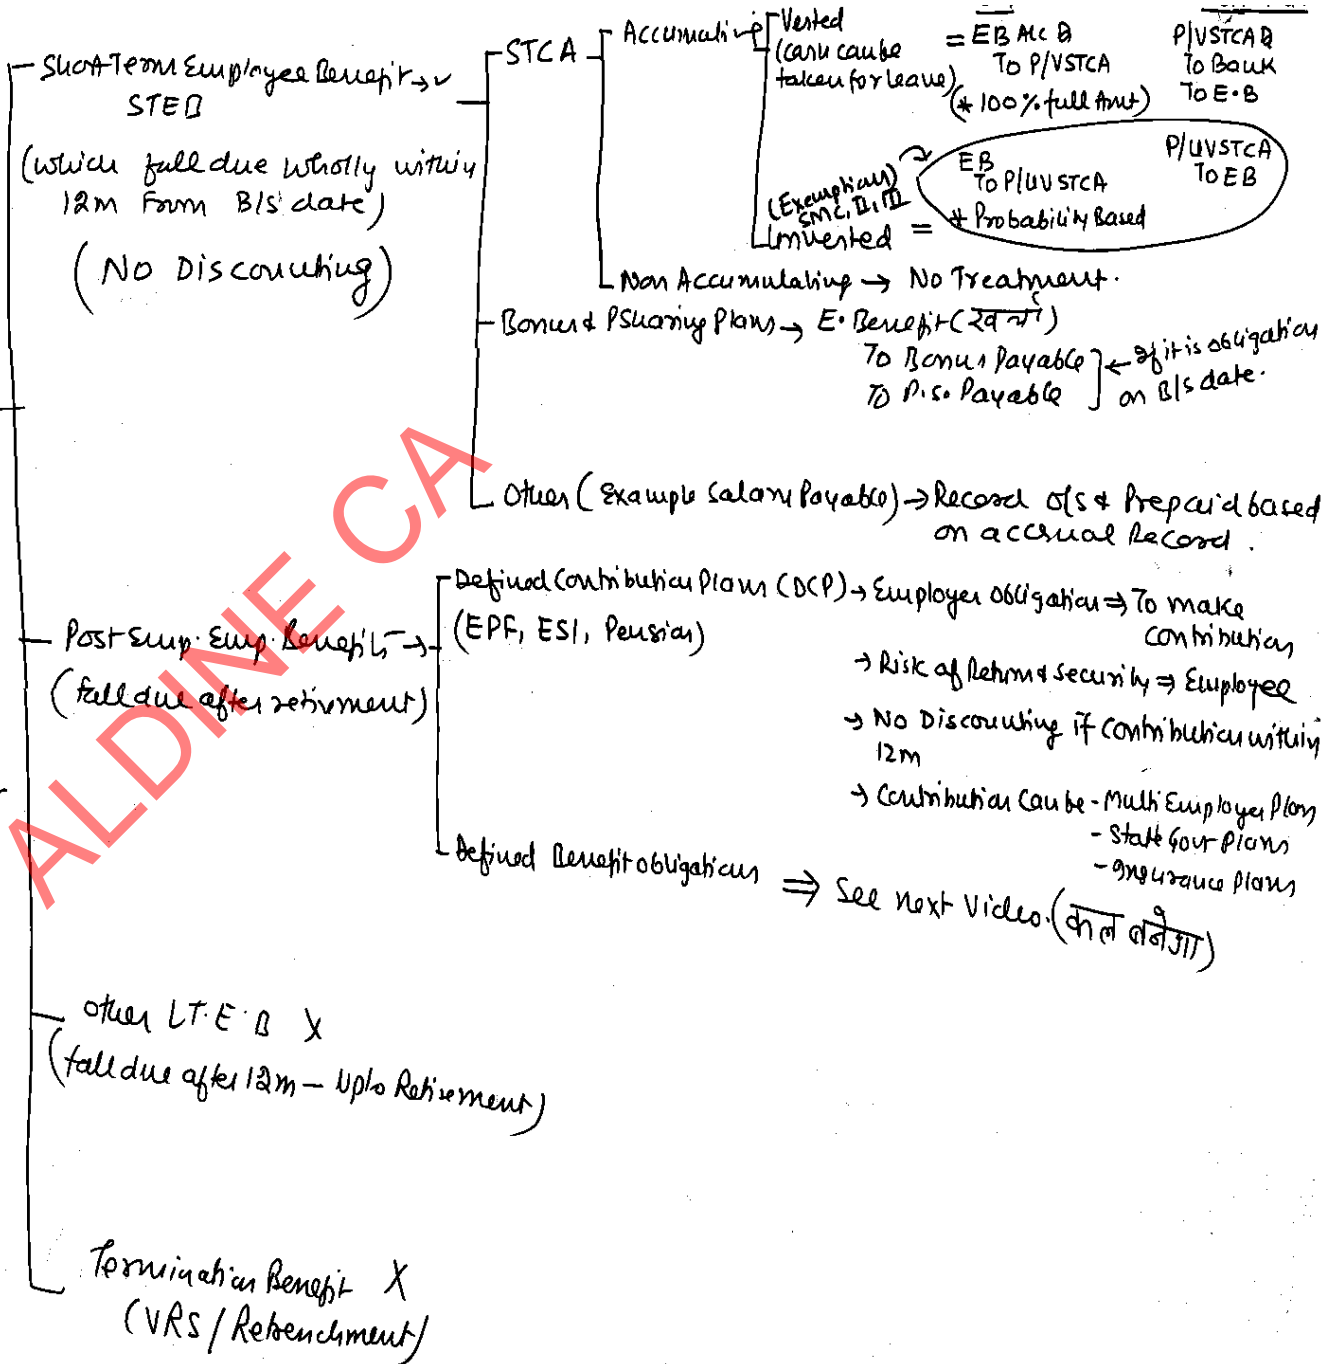 Short Term Employee Benefit →
STEB
(which fall due wholly within
12m from B/S date)
(No Discounting)
STCA
Accumulative
Vested
(cash can be
taken for leave)
= EB A/c D
To P/VSTCA
(* 100% full Amt)
P/VSTCA D
To Bank
To E.B
(Exemption)
SMC, II, III
Unvested =
EB
To P/UVSTCA
* Probability Based
P/UVSTCA
To EB
Non Accumulating → No Treatment.
Bonus & P Sharing Plans → E. Benefit (खर्चा)
To Bonus Payable
To P.S. Payable
← If it is obligation
on B/S date.
Other (Example Salary Payable) → Record O/S & Prepaid based
on accrual Record.
Post Emp. Emp. Benefits →
(fall due after retirement)
Defined Contribution Plans (DCP) → Employer obligation ⇒ To make
contribution
(EPF, ESI, Pension)
→ Risk of Return & security ⇒ Employee
→ No Discounting if contribution within
12m
→ Contribution can be - Multi Employer Plans
- State Govt Plans
- Insurance Plans
Defined Benefit obligations ⇒ See next Video. (कल बनेगा)
Other L.T.E.B X
(fall due after 12m - Upto Retirement)
Termination Benefit X
(VRS / Retrenchment)
ALDINE CA